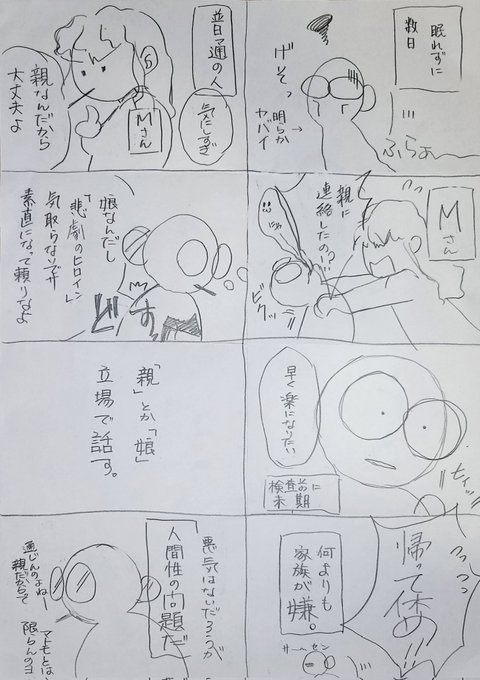 眠れずに
数日
げそっ
明らか
ヤバイ
ふらぁ〜
Mさん
親に
連絡したの!?
ビクッ
早く楽になりたい
検査前に
末期
帰って休め!!
何よりも
家族が
嫌。
普通の人
気にしすぎ
Mさん
親なんだから
大丈夫よ
娘なんだし
「悲劇のヒロイン」
気取らないでサ
素直になって頼りなよ
「親」とか「娘」
立場で話す。
悪気はないだろうが
人間性の問題だ
通じんのよねー
親だからって
マトモとは
限らんのヨ